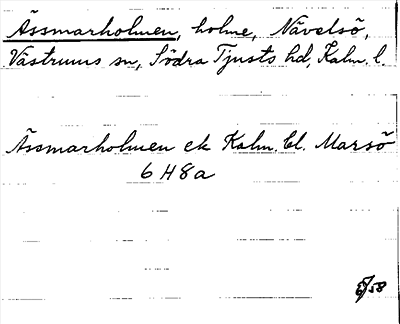 Ässmarholmen, holme, Nävelsö,
Västrums sn, Södra Tjusts hd, Kalm. l.
Ässmarholmen ek Kalm. bl. Marsö
6 H 8 a